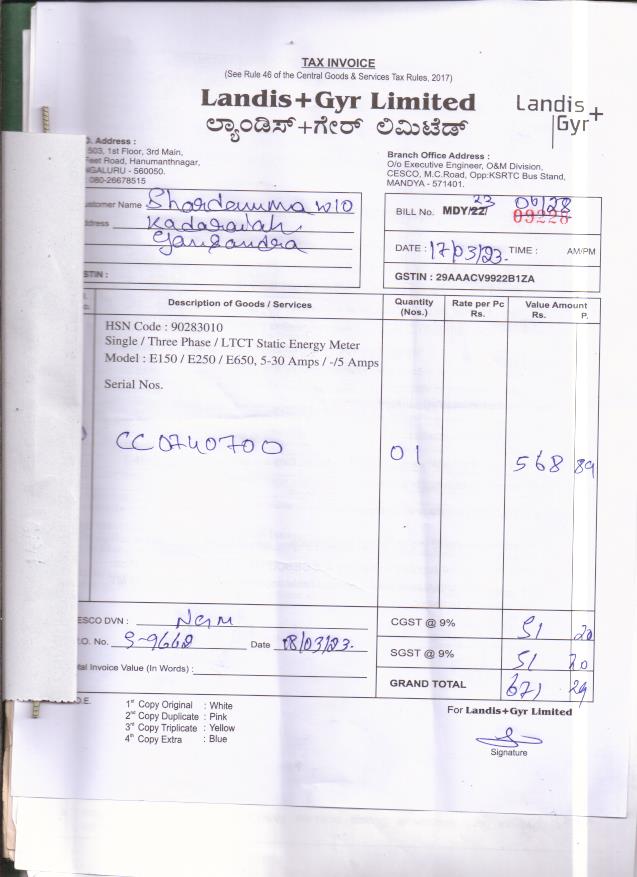 TAX INVOICE
(See Rule 46 of the Central Goods & Services Tax Rules, 2017)
Landis+Gyr Limited
ಲ್ಯಾಂಡಿಸ್+ಗೇರ್ ಲಿಮಿಟೆಡ್
Landis+
Gyr
Address :
503, 1st Floor, 3rd Main,
Feet Road, Hanumanthnagar,
GALURU - 560050.
080-26678515
Branch Office Address :
O/o Executive Engineer, O&M Division,
CESCO, M.C.Road, Opp:KSRTC Bus Stand,
MANDYA - 571401.
ustomer Name w/o
ddress Kadaraiah
STIN :
BILL No. MDY/22/ 23
DATE : 17/03/23. TIME : AM/PM
GSTIN : 29AAACV9922B1ZA
Description of Goods / Services Quantity (Nos.) Rate per Pc Rs. Value Amount Rs. P.
HSN Code : 90283010
Single / Three Phase / LTCT Static Energy Meter
Model : E150 / E250 / E650, 5-30 Amps / -/5 Amps
Serial Nos.
CC0740700 01 568 89
ESCO DVN : NGM
CGST @ 9% 51 20
.O. No. S-9662 Date 18/03/23.
SGST @ 9% 51 20
tal Invoice Value (In Words) :
GRAND TOTAL 671 29
O.E.
1st Copy Original : White
2nd Copy Duplicate : Pink
3rd Copy Triplicate : Yellow
4th Copy Extra : Blue
For Landis+Gyr Limited
Signature